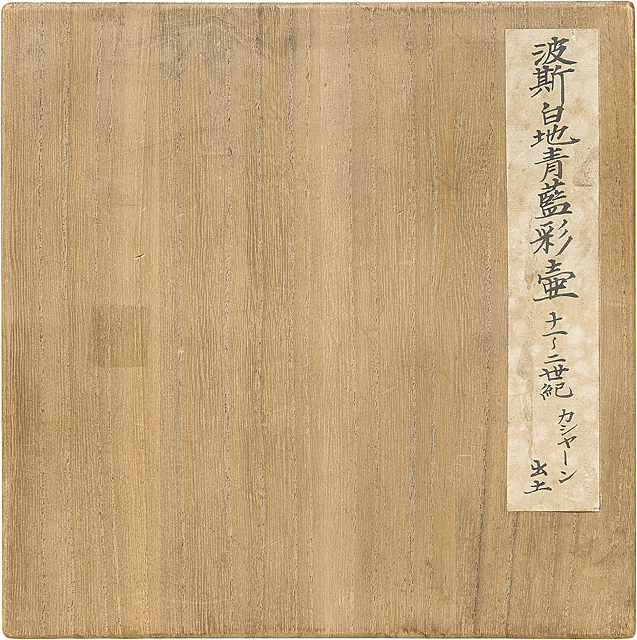 波斯白地青藍彩壷 十一～二世紀 カシャーン出土